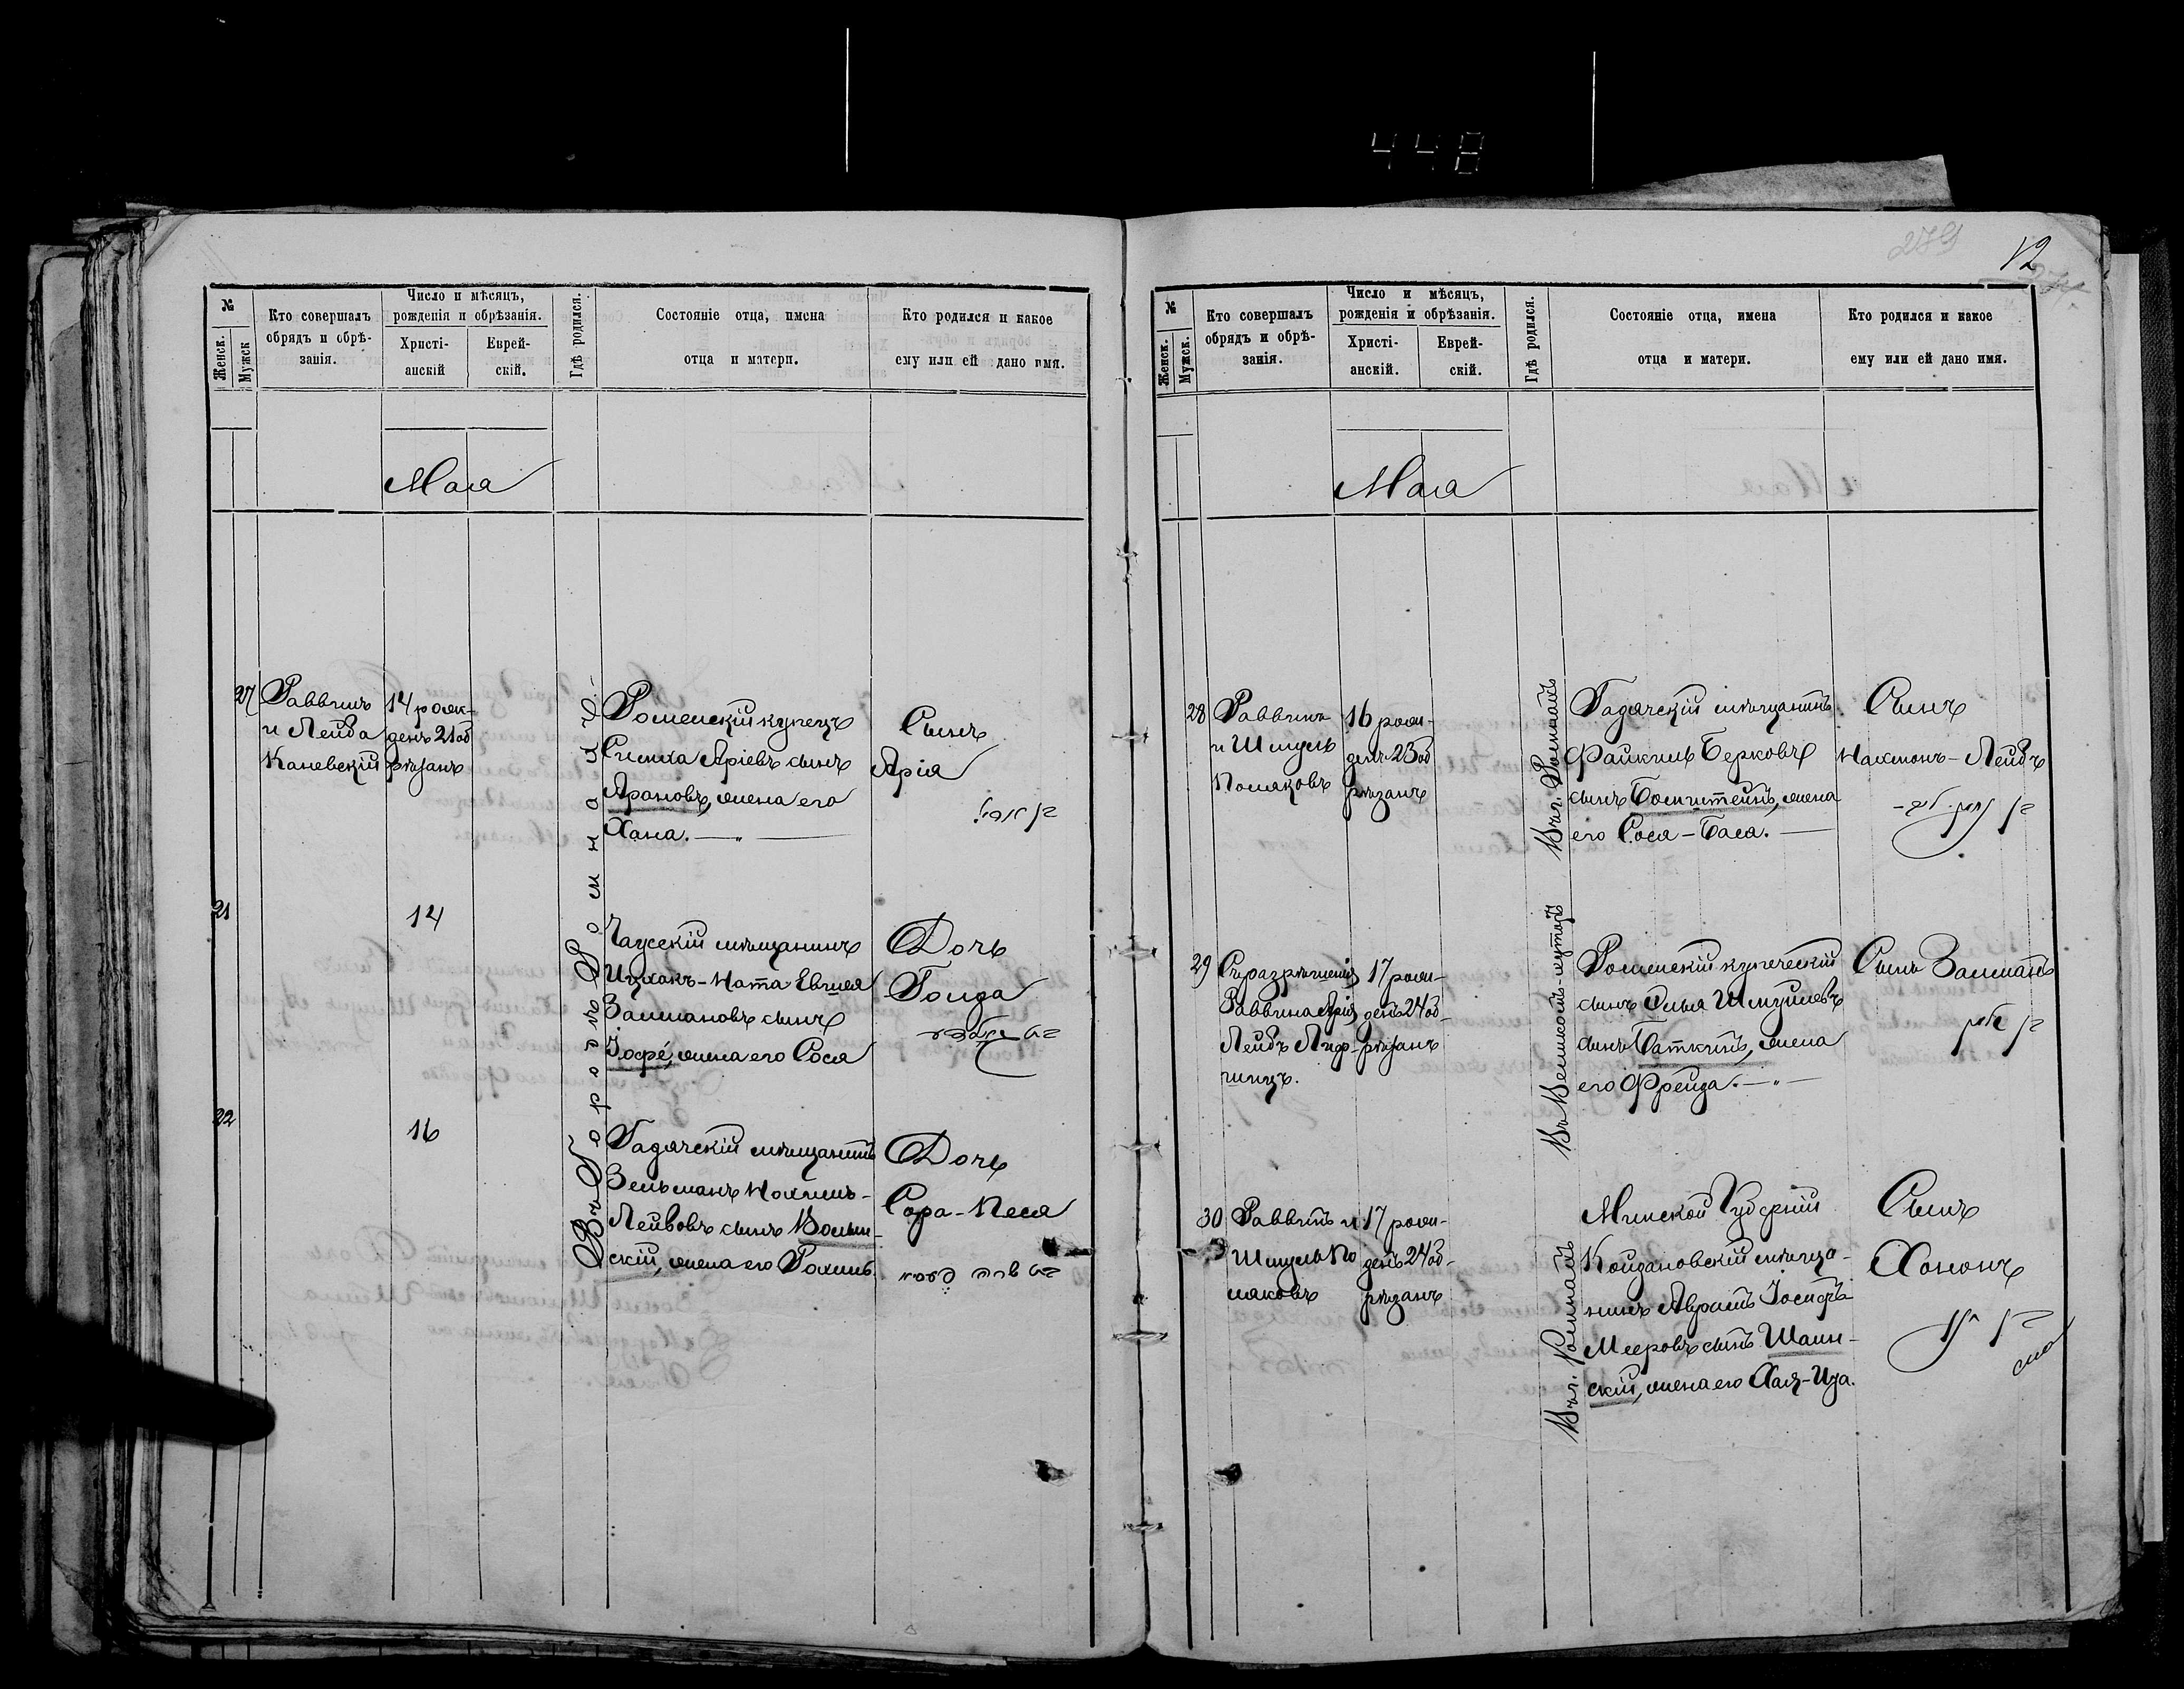 448
279
12
№
Женск.
Мужск
Кто совершалъ
обрядъ и обрѣ-
занія.
Число и мѣсяцъ,
рожденія и обрѣзанія.
Христі-
анскій
Еврей-
скій.
Гдѣ родился.
Состояніе отца, имена
отца и матери.
Кто родился и какое
ему или ей дано имя.
Мая
27
Раввинъ
и Лейба
Каневскій
14 рож-
денъ 21 об
рѣзанъ
Въ городѣ Ромнахъ.
Роменскій купецъ
Симха Аріевъ сынъ
Ароновъ, жена его
Хана.
Сынъ
Арія
21
14
Чаусскій мѣщанинъ
Ицхокъ-Нота Евшея
Залмановъ сынъ
Іоффе, жена его Сося
Дочь
Голда
22
16
Гадячскій мѣщанинъ
Зельманъ Нохимъ-
Лейбовъ сынъ Волын-
скій, жена его Рохиль.
Дочь
Сора-Песя
№
Женск.
Мужск.
Кто совершалъ
обрядъ и обрѣ-
занія.
Число и мѣсяцъ,
рожденія и обрѣзанія.
Христі-
анскій.
Еврей-
скій.
Гдѣ родился.
Состояніе отца, имена
отца и матери.
Кто родился и какое
ему или ей дано имя.
Мая
28
Раввинъ
и Шмуль
Поляковъ
16 рож-
денъ 23 об
рѣзанъ
Въ г. Ромнахъ
Гадячскій мѣщанинъ
Файвишъ Берковъ
сынъ Бомштейнъ, жена
его Сося-Бася.
Сынъ
Нахмонъ-Лейбъ
29
Съ разрѣшенія
Раввина Арія
Лейбъ Лиф-
шицъ.
17 рож-
денъ 24 об-
рѣзанъ
Роменскій купеческій
сынъ Илья Шмуилевъ
сынъ Баткинъ, жена
его Фрейда.
Сынъ Залманъ
30
Раввинъ и
Шмуль По
ляковъ
17 рож-
денъ 24 об-
рѣзанъ
Въ г. Ромнахъ
Минской Губерніи
Койдановскій мѣща-
нинъ Авраамъ Іосифъ
Мееровъ сынъ Шаин-
скій, жена его Хая-Ида.
Сынъ
Хононъ